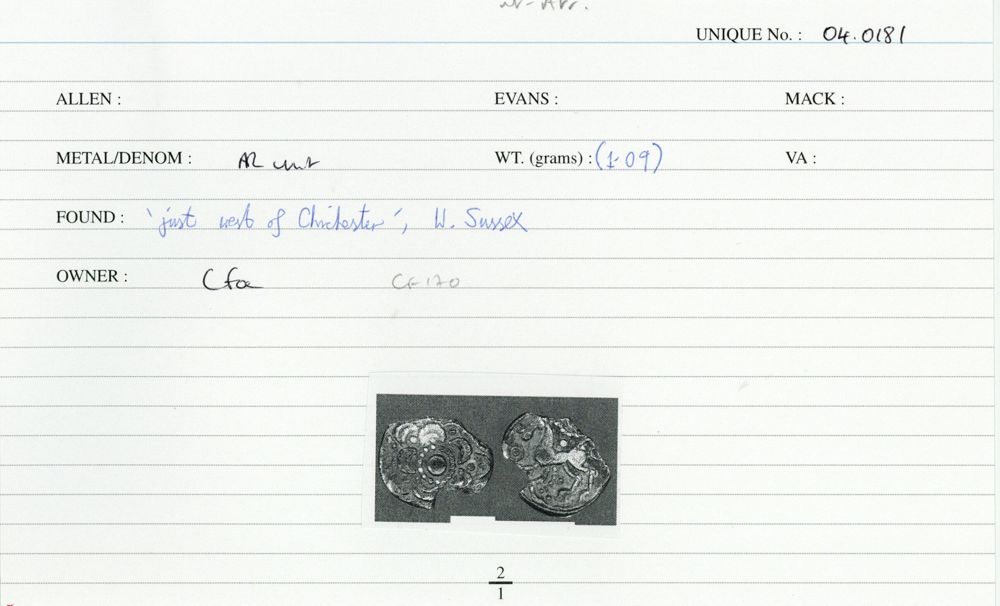 UNIQUE No. : 04.0181
ALLEN : EVANS : MACK :
METAL/DENOM : AR unit WT. (grams) : (1.09) VA :
FOUND : 'just west of Chichester', W. Sussex
OWNER : CF 170
2
1